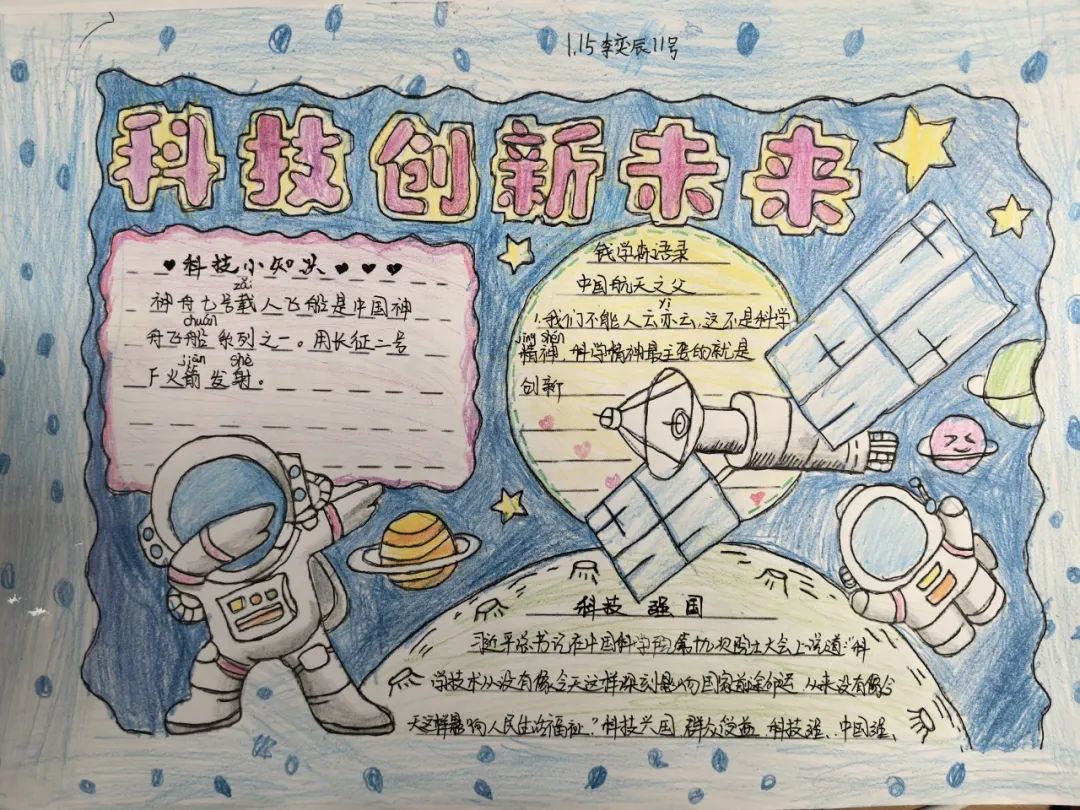 1.15 李奕辰 11号
科技创新未来
科技小知识
zǎi
神舟七号载人飞船是中国神
chuán
舟飞船系列之一。用长征二号
jiàn shè
F火箭发射。
钱学森语录
中国航天之父
yì
1.我们不能人云亦云,这不是科学
jīng shén
精神,科学精神最主要的就是
创新
科技强国
习近平总书记在中国科学院第十九次院士大会上说道:"科
学技术从没有像今天这样深刻影响国家前途命运,从来没有像今
天这样影响人民生活福祉."科技兴国,群众受益,科技强、中国强、